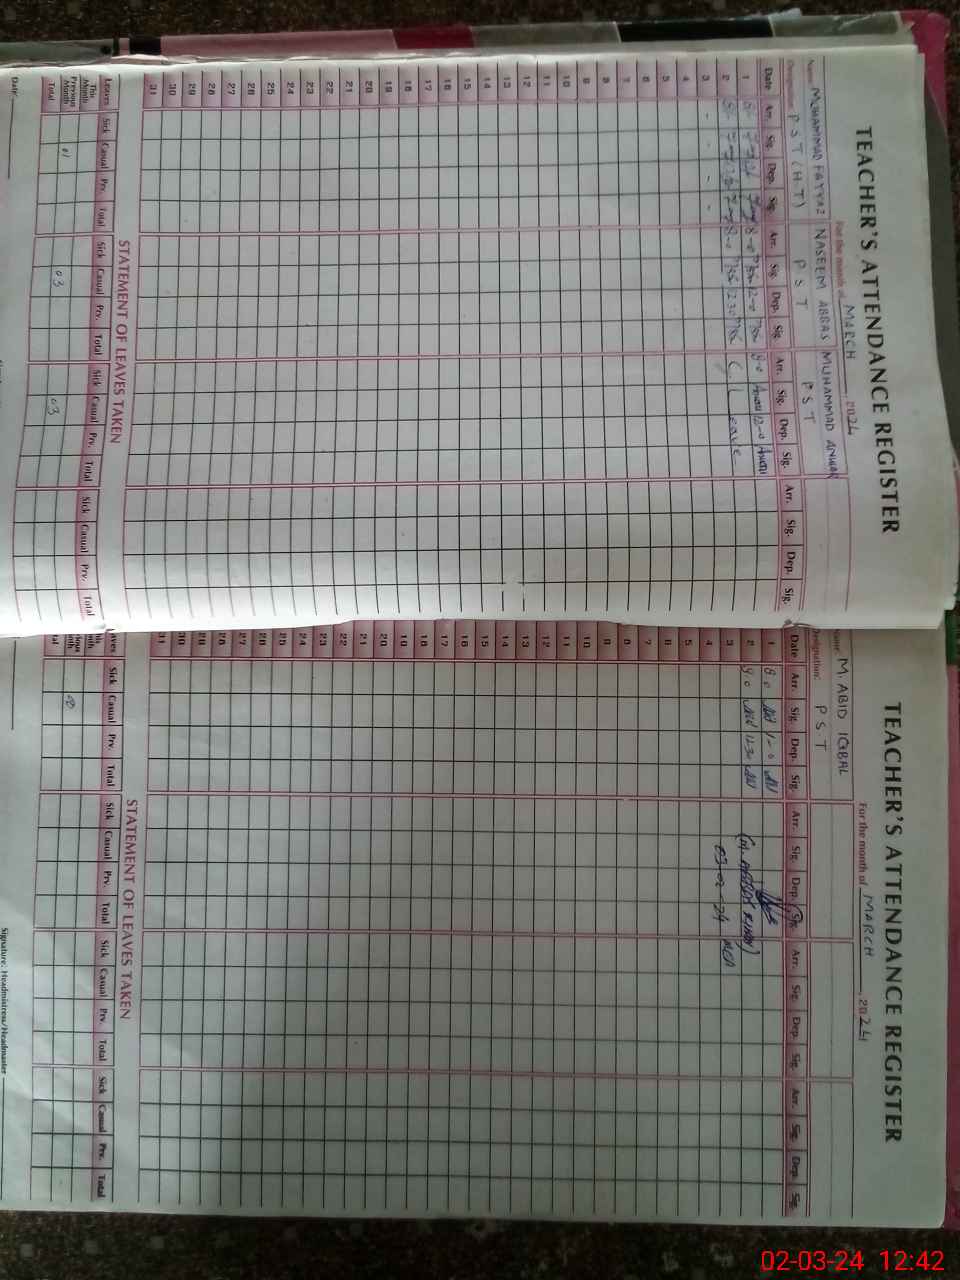 TEACHER'S ATTENDANCE REGISTER
For the month of MARCH, 2024
Name: MUHAMMAD FAYYAZ NASEEM ABBAS MUHAMMAD ANWAR
Designation: PST (HT) PST PST
Date Arr. Sig. Dep. Sig. Arr. Sig. Dep. Sig. Arr. Sig. Dep. Sig. Arr. Sig. Dep. Sig.
1 8-0 12-0 8-0 Anwar 12-0 Anwar
2 8-0 1230 C L Leave
3 - - - -
4
5
6
7
8
9
10
11
12
13
14
15
16
17
18
19
20
21
22
23
24
25
26
27
28
29
30
31
STATEMENT OF LEAVES TAKEN
Leaves Sick Casual Prv. Total Sick Casual Prv. Total Sick Casual Prv. Total Sick Casual Prv. Total
This Month
Previous Month 01 03 03
Total
Date:
TEACHER'S ATTENDANCE REGISTER
For the month of MARCH, 2024
Name: M. ABID IQBAL
Designation: PST
Date Arr. Sig. Dep. Sig. Arr. Sig. Dep. Sig. Arr. Sig. Dep. Sig. Arr. Sig. Dep. Sig.
1 8-0 1-0
2 9-0 12-30
3 03-02-24 MEA
4
5
6
7
8
9
10
11
12
13
14
15
16
17
18
19
20
21
22
23
24
25
26
27
28
29
30
31
STATEMENT OF LEAVES TAKEN
Sick Casual Prv. Total Sick Casual Prv. Total Sick Casual Prv. Total Sick Casual Prv. Total
Total
Signature: Headmistress/Headmaster
02-03-24 12:42